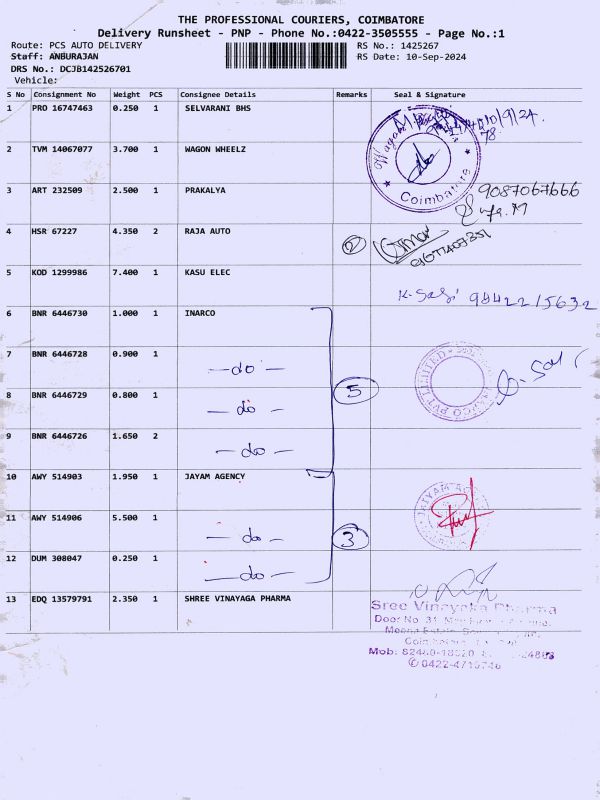 THE PROFESSIONAL COURIERS, COIMBATORE
Delivery Runsheet - PNP - Phone No.:0422-3505555 - Page No.:1
Route: PCS AUTO DELIVERY RS No.: 1425267
Staff: ANBURAJAN RS Date: 10-Sep-2024
DRS No.: DCJB142526701
Vehicle:
S No Consignment No Weight PCS Consignee Details Remarks Seal & Signature
1 PRO 16747463 0.250 1 SELVARANI BHS
10/9/24
78
2 TVM 14067077 3.700 1 WAGON WHEELZ
Coimbatore
3 ART 232509 2.500 1 PRAKALYA 9087067666
4 HSR 67227 4.350 2 RAJA AUTO 2
5 KOD 1299986 7.400 1 KASU ELEC
K. Sasi 98422 15632
6 BNR 6446730 1.000 1 INARCO
7 BNR 6446728 0.900 1 -do-
8 BNR 6446729 0.800 1 -do- 5
9 BNR 6446726 1.650 2 -do-
10 AWY 514903 1.950 1 JAYAM AGENCY
11 AWY 514906 5.500 1 -do- 3
12 DUM 308047 0.250 1 -do-
13 EDQ 13579791 2.350 1 SHREE VINAYAGA PHARMA
Sree Vinayaka Pharma
Door No. 31
Meena Estate
Mob: 82440-18520
0422-4710746